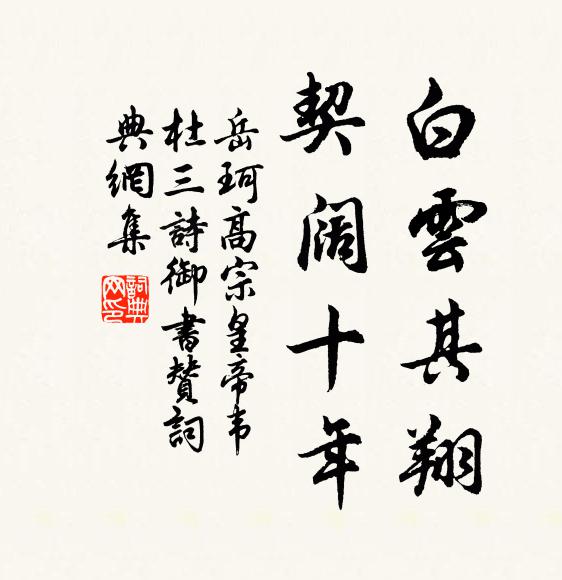 白雲其翔
契闊十年
岳珂高宗皇帝韦
杜三詩御書贊詞
典網集
詞典網印